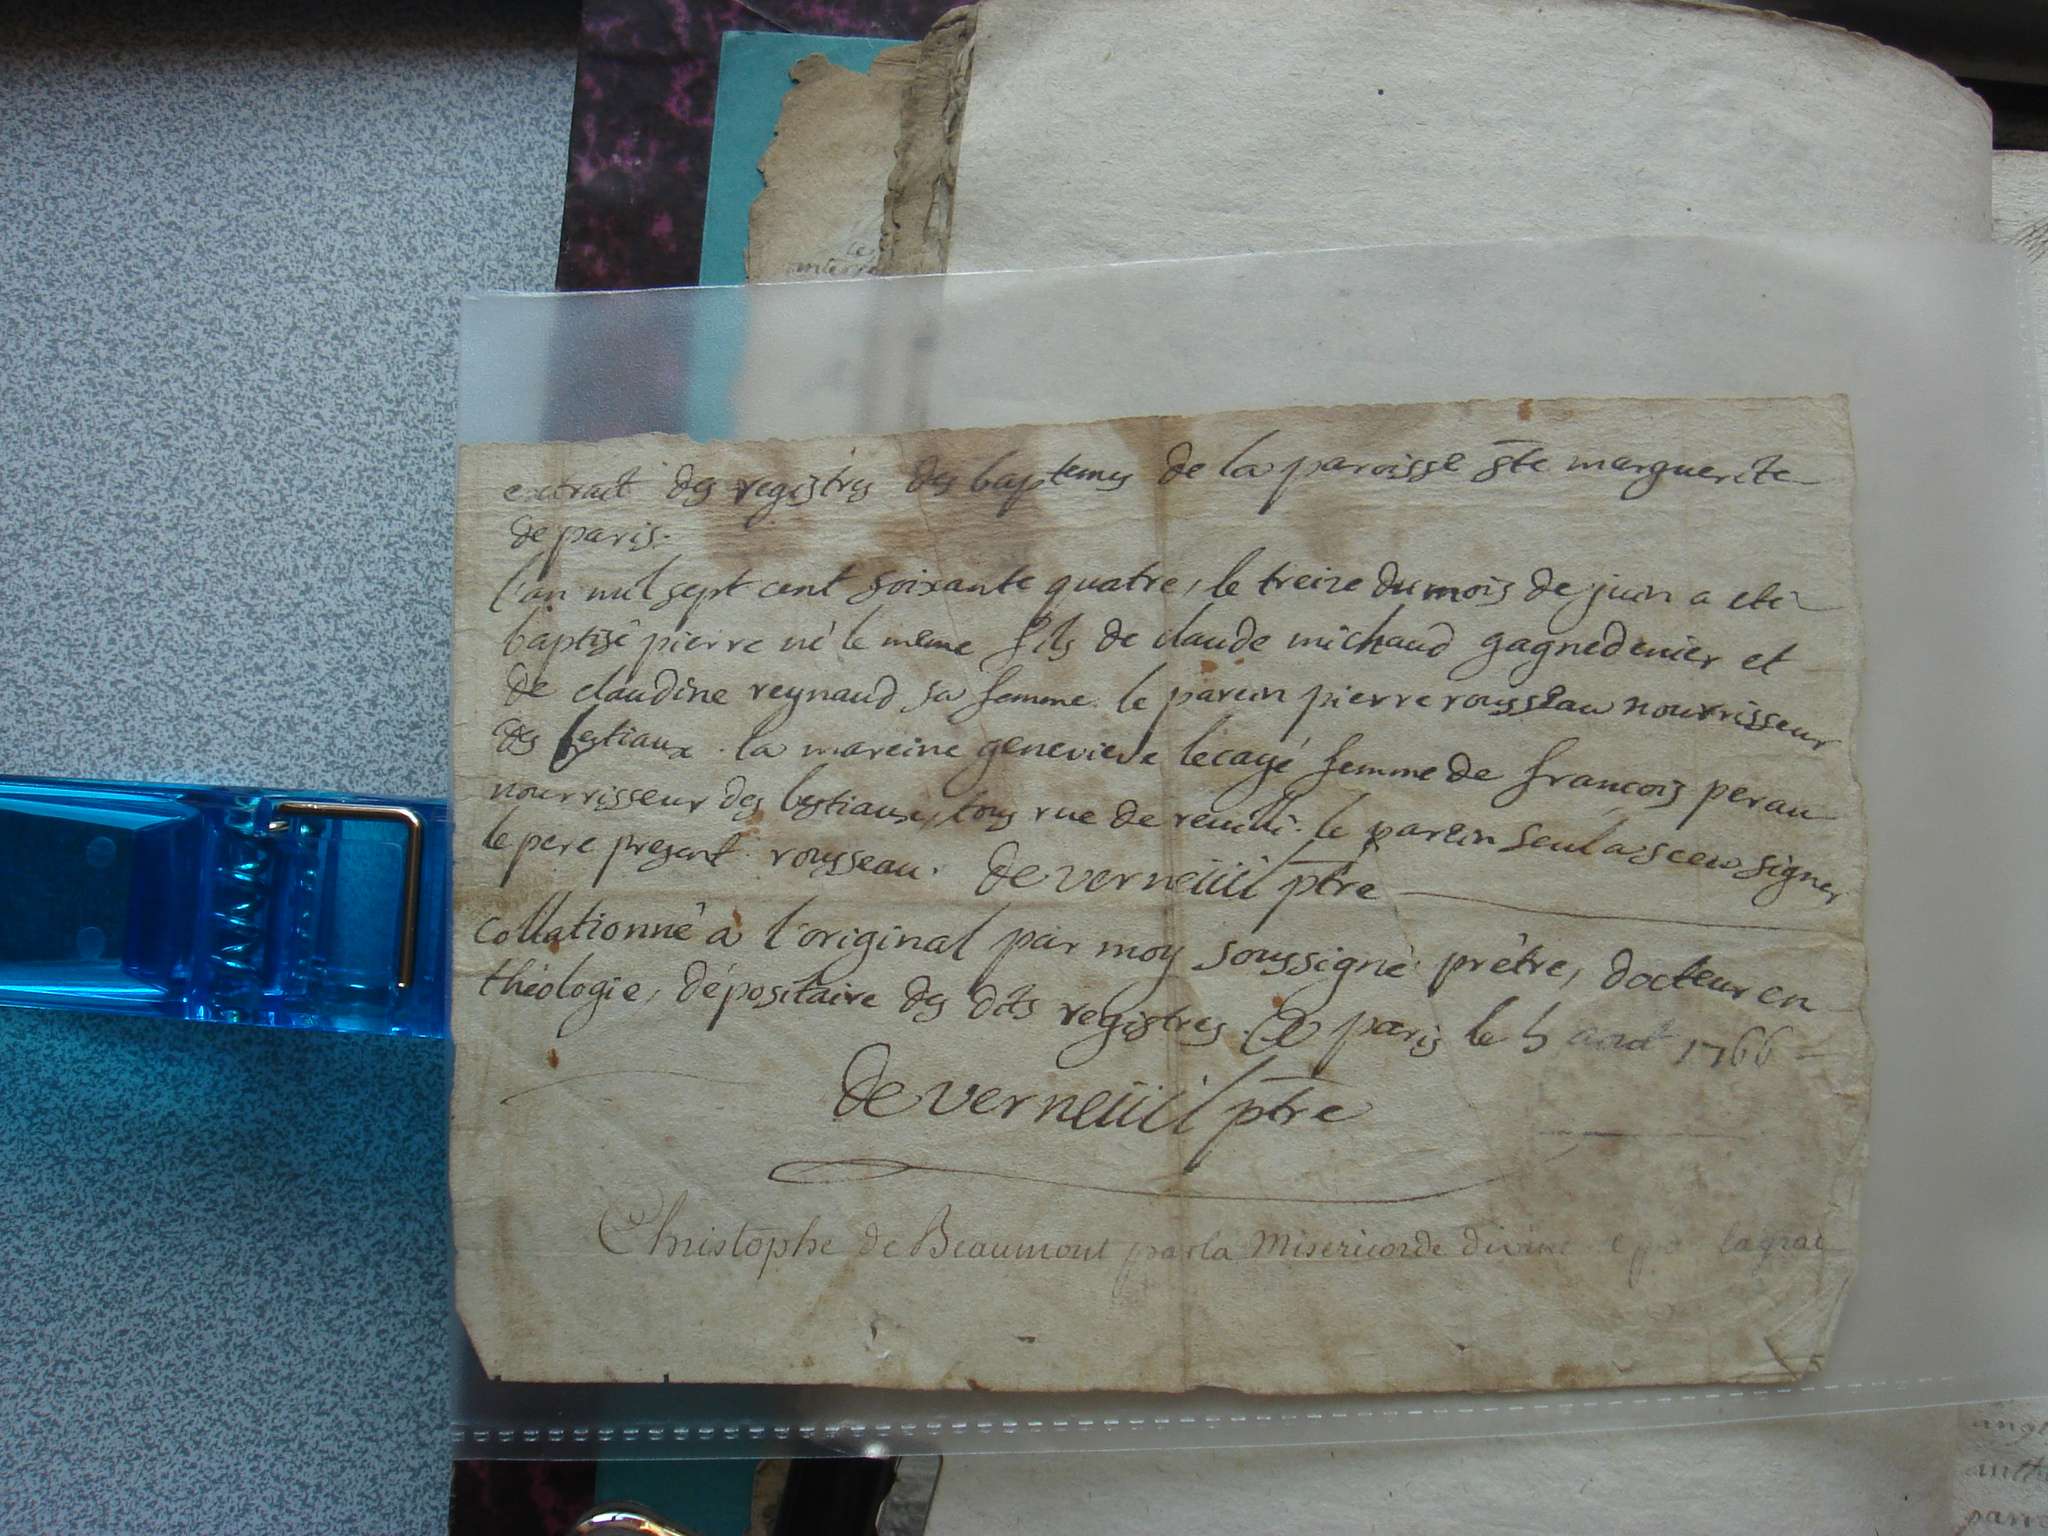 extrait des registres des baptemes de la paroisse ste marguerite
de paris.
l'an mil sept cent soixante quatre, le treize du mois de juin a eté
baptisé pierre né le meme fils de claude michaud gagnedenier et
de claudine reynaud sa femme. le parein pierre rousseau nourrisseur
des bestiaux. la mareine genevieve lecayé femme de francois perau
nourrisseur des bestiaux, tous rue de reuilli. le parein seul a sceu signer
le pere present. rousseau. de verneüil ptre
collationné a l'original par moy soussigné prêtre, docteur en
théologie, dépositaire des dits registres. a paris le 5 aout 1766
de verneüil ptre
Christophe de Beaumont par la Misericorde divine la grac